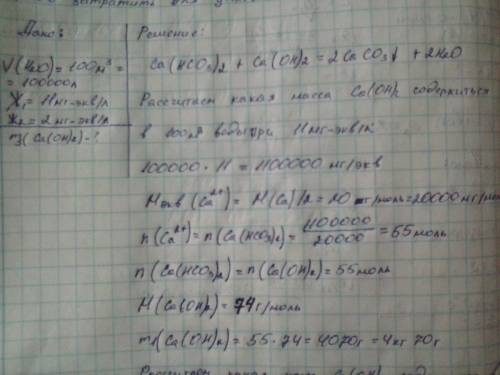 Дано:
V(H2O) = 100 м³ =
= 100000 л
Ж1 = 11 мг-экв/л
Ж2 = 2 мг-экв/л
m(Ca(OH)2) - ?
Решение:
Ca(HCO3)2 + Ca(OH)2 = 2CaCO3↓ + 2H2O
Рассчитаем какая масса Ca(OH)2 содержиться
в 100 м³ воды при 11 мг-экв/л
100000 · 11 = 1100000 мг/экв
Mэкв (Ca²⁺) = M(Ca)/2 = 20 г/моль = 20000 мг/моль
n(Ca²⁺) = n(Ca(HCO3)2) = 1100000/20000 = 55 моль
n(Ca(HCO3)2) = n(Ca(OH)2) = 55 моль
M(Ca(OH)2) = 74 г/моль
m1(Ca(OH)2) = 55 · 74 = 4070 г = 4 кг 70 г
Рассчитаем какая Ca(OH)2